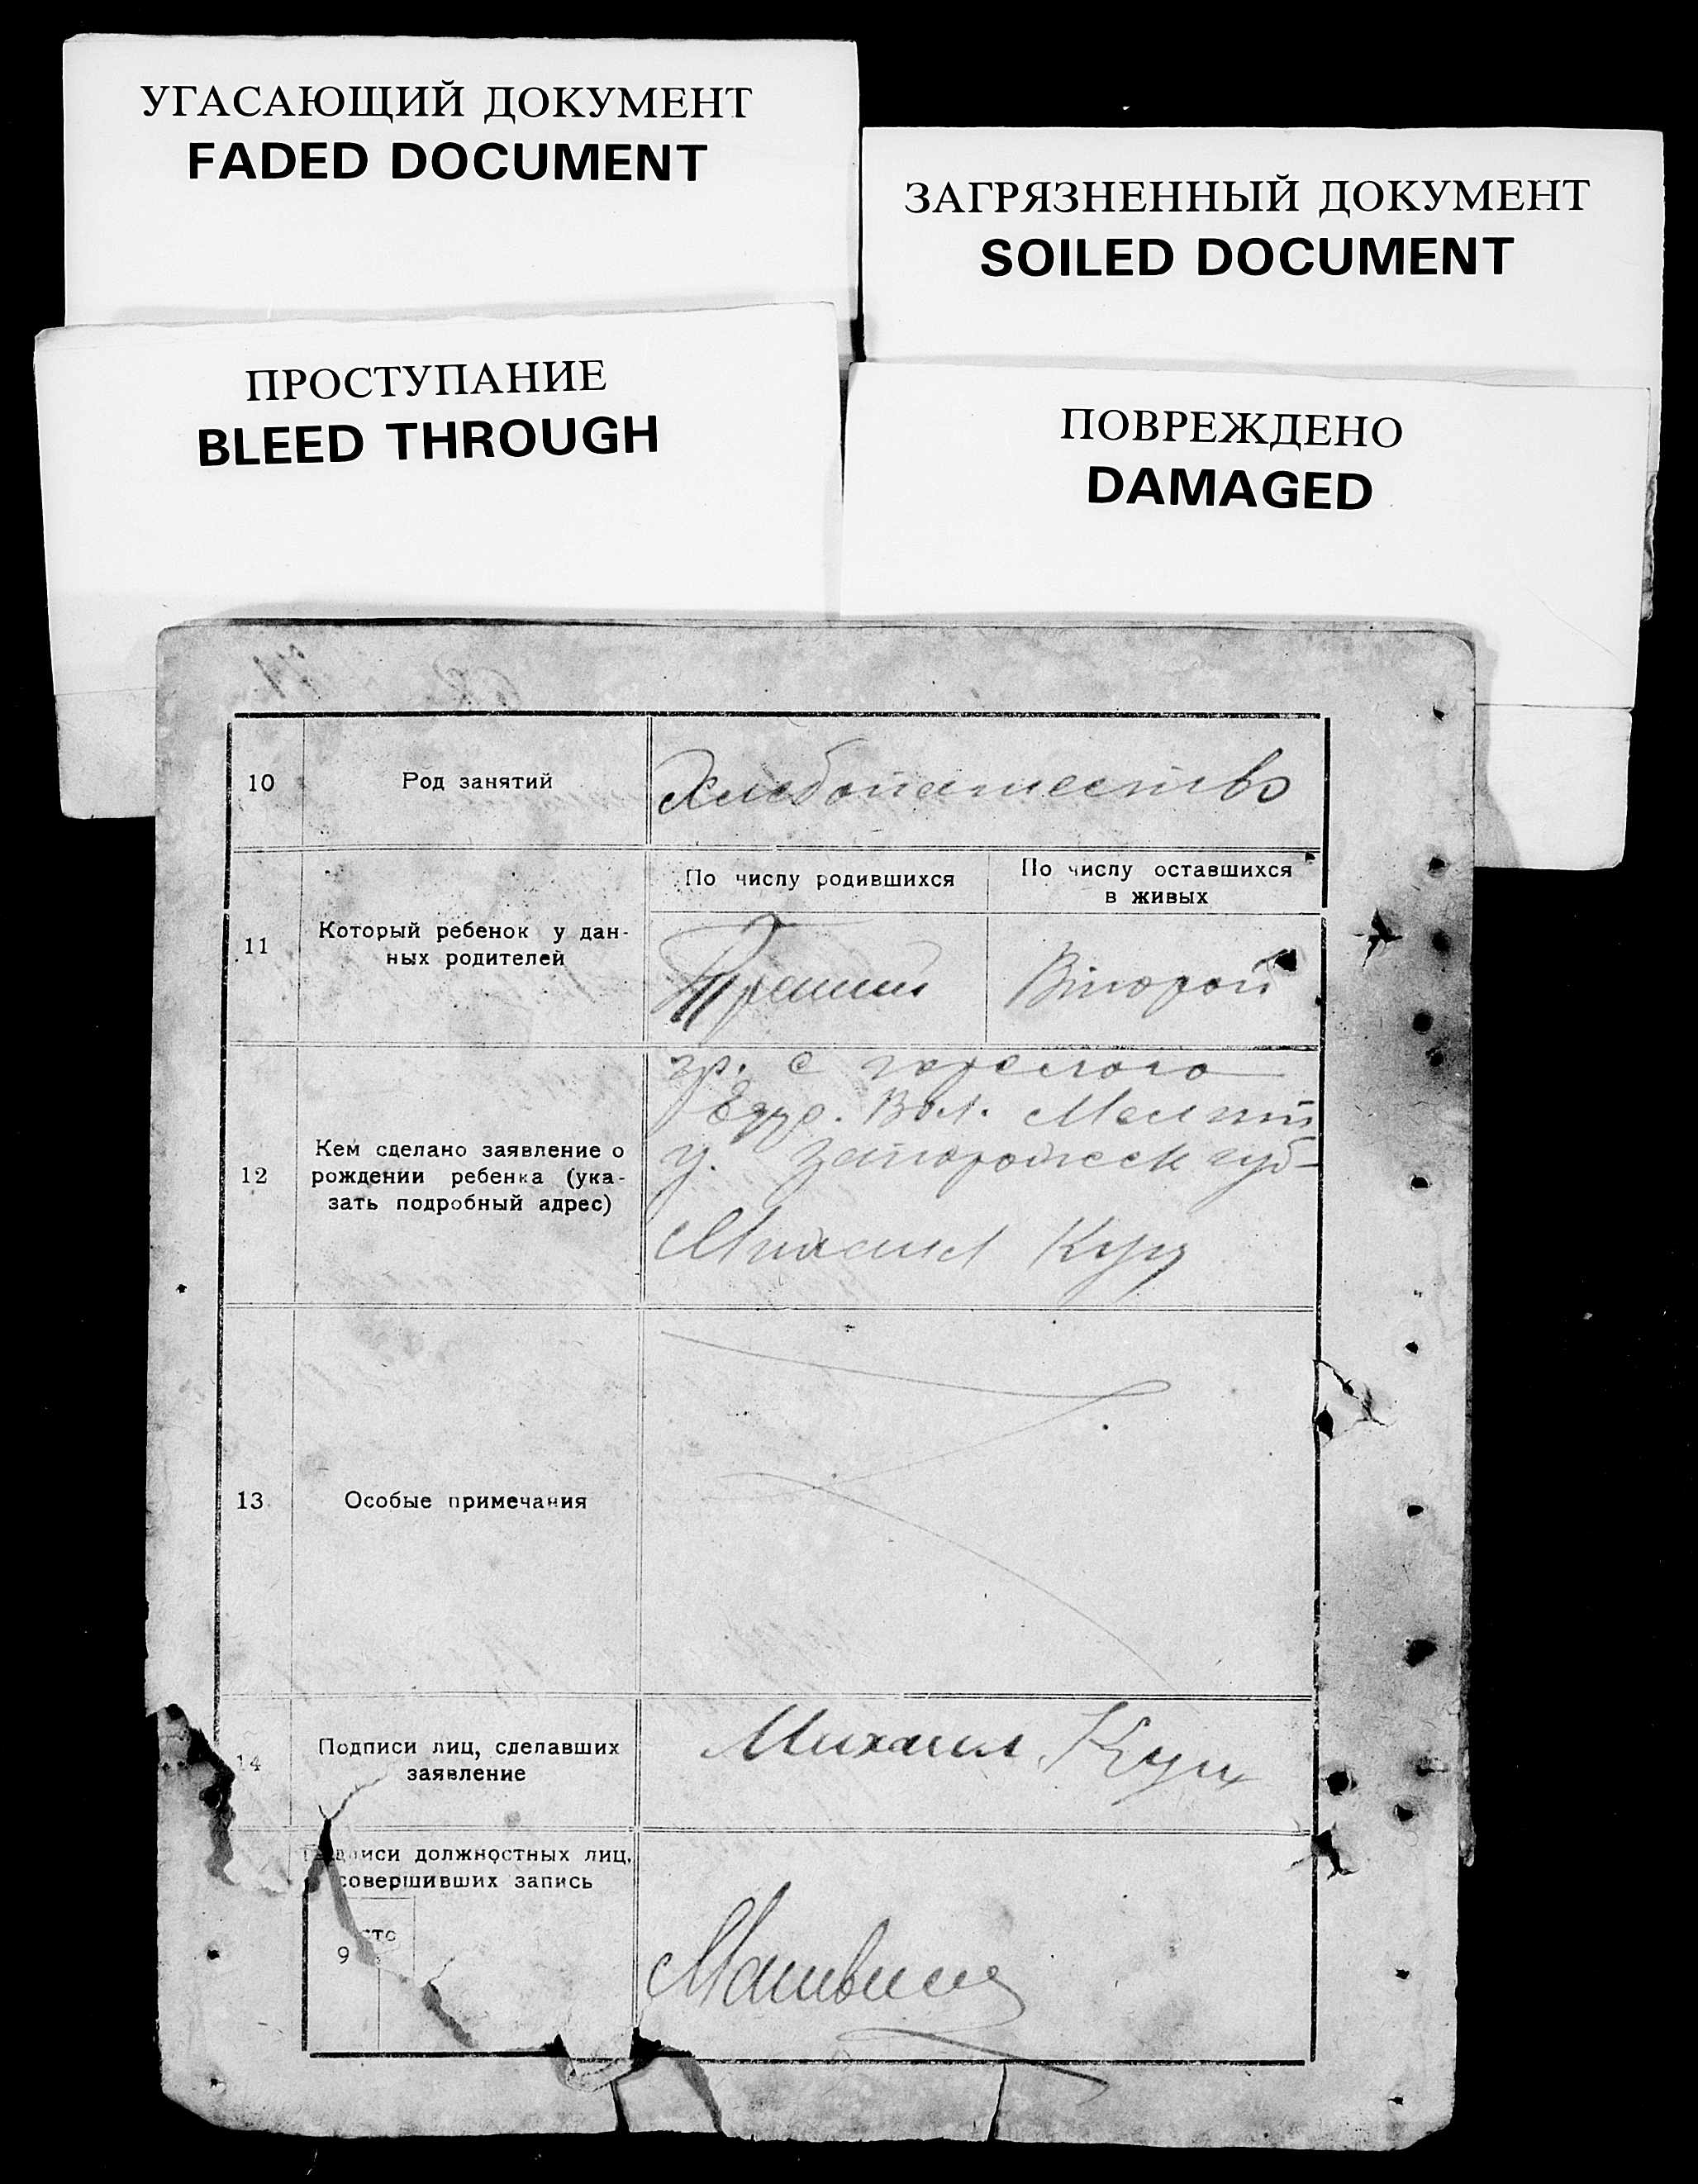 УГАСАЮЩИЙ ДОКУМЕНТ
FADED DOCUMENT
ЗАГРЯЗНЕННЫЙ ДОКУМЕНТ
SOILED DOCUMENT
ПРОСТУПАНИЕ
BLEED THROUGH
ПОВРЕЖДЕНО
DAMAGED
10
Род занятий
Хлебопашество
11
Который ребенок у дан-
ных родителей
По числу родившихся
По числу оставшихся
в живых
Третий
Второй
12
Кем сделано заявление о
рождении ребенка (ука-
зать подробный адрес)
гр. с Терелого
Вол. Мелит
у. Запорожск губ-
Михаил Куц
13
Особые примечания
14
Подписи лиц, сделавших
заявление
Михаил Куц
Подписи должностных лиц,
совершивших запись
9